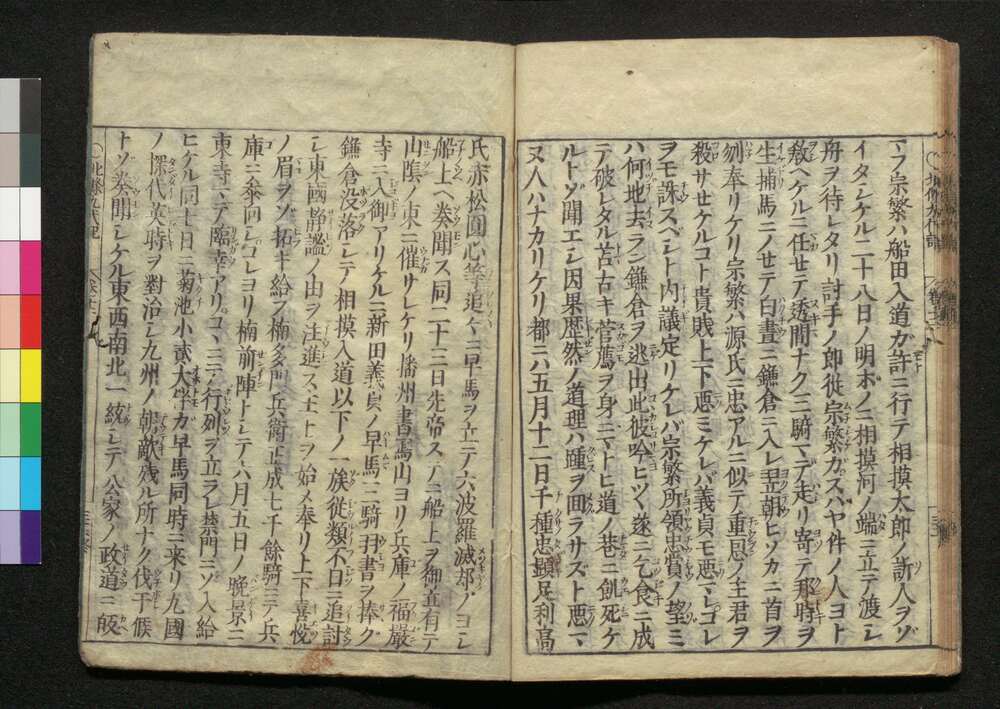 マフ宗繁ハ船田入道ガ許ニ行テ相摸太郎ノ訴人ヲゾ
イタシケル二十八日ノ明ボノニ相摸河ノ端ニ立テ渡シ
舟ヲ待レタリ討手ノ郎従宗繁カスハヤ件ノ人ヨト
教ヘケルニ任セテ透間ナク三騎マデ走リ寄テ那時ヲ
生捕馬ニノセテ白晝ニ鎌倉ニ入レ翌朝ヒソカニ首ヲ
刎奉リケリ宗繁ハ源氏ニ忠アルニ似テ重恩ノ主君ヲ
殺サセケルコト貴賎上下悪ミケレバ義貞モ悪マレコレ
ヲモ誅スベレト内議定リケレバ宗繁所領忠賞ノ望ミ
ハ何地去ラン鎌倉ヲ逃出此彼吟ヒツヽ遂ニ乞食ニ成
テ破レタル苫古キ菅薦ヲ身ニマトヒ道ノ巷ニ飢死ケ
ルトゾ聞エシ因果歴然ノ道理ハ踵ヲ囬ラサズト悪マ
ヌ人ハナカリケリ都ニハ五月十二日千種忠顕足利高
氏赤松圓心等追々ニ早馬ヲ立テ六波羅滅却ノヨシ
船上ヘ奏聞ス同二十三日先帝ステニ船上ヲ御立有テ
山隂ノ東ニ催サレケリ播州書寫山ヨリ兵庫ノ福嚴
寺ニ入御アリケルニ新田義貞ノ早馬三騎羽書ヲ捧ク
鎌倉没落シテ相摸入道以下ノ一族従類不日ニ追討
シ東國静謐ノ由ヲ注進ス主上ヲ始メ奉リ上下喜悦
ノ眉ヲソ拓キ給フ楠多門兵衛正成七千餘騎ニテ兵
庫ニ参向シコレヨリ楠前陣トシテ六月五日ノ晩景ニ
東寺マデ臨幸アリコヽニテ行列ヲ立ラレ禁門ニソ入給
ヒケル同十日ニ菊池小貳大伴カ早馬同時ニ来リ九國
ノ探代英時ヲ對治シ九州ノ朝敵残ル所ナク伐干候
トソ奏聞シケル東西南北一統シテ公家ノ政道ニ皈